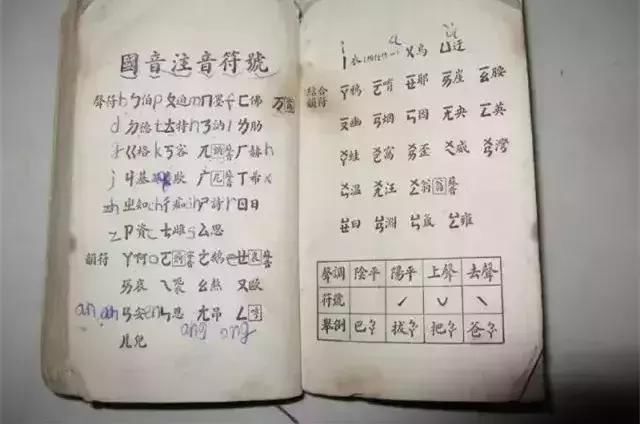 國音注音符號
聲符 b ㄅ伯 p ㄆ迫 m ㄇ墨 f ㄈ佛 万
d ㄉ德 t ㄊ特 n ㄋ訥 l ㄌ肋
ㄍ格 k ㄎ客 ㄫ ㄏ赫 h
j ㄐ基 ㄑ欺 ㄬ ㄒ希 x
zh ㄓ知 ch ㄔ痴 sh ㄕ詩 r ㄖ日
z ㄗ資 c ㄘ雌 s ㄙ思
韻符 ㄚ阿 o ㄛ ㄜ鵝 e ㄝ
ㄞ哀 ㄟ ㄠ熬 ㄡ歐
an an ㄢ安 en ㄣ恩 ㄤ昂 ㄥ
ang eng
ㄦ兒
i 衣 ㄨ烏 ㄩ迂
結合韻符 ㄧㄚ鴉 ㄧㄛ唷 ㄧㄝ耶 ㄧㄞ崖 ㄧㄠ腰
ㄧㄡ幽 ㄧㄢ烟 ㄧㄣ因 ㄧㄤ央 ㄧㄥ英
ㄨㄚ蛙 ㄨㄛ窩 ㄨㄞ歪 ㄨㄟ威 ㄨㄢ灣
ㄨㄣ温 ㄨㄤ汪 ㄨㄥ翁
ㄩㄝ曰 ㄩㄢ淵 ㄩㄣ氳 ㄩㄥ雍
聲調 陰平 陽平 上聲 去聲
符號 ˊ ˇ ˋ
舉例 巴 拔 把 爸